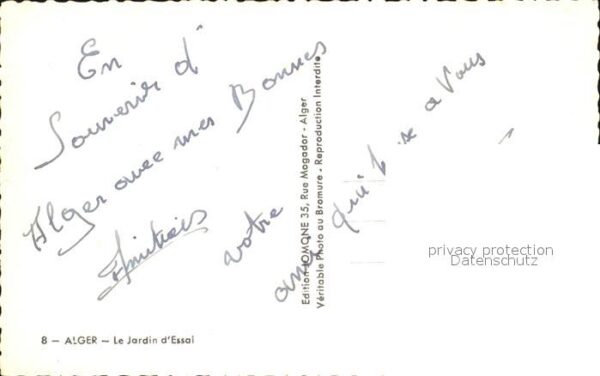 En
Souvenir d'
Alger avec mes Bonnes
Amitiés
votre
ami qui a Vous
Edition JOMONE 35, Rue Mogador - Alger
Véritable Photo au Bromure - Reproduction Interdite
privacy protection
Datenschutz
8 — ALGER — Le Jardin d'Essai